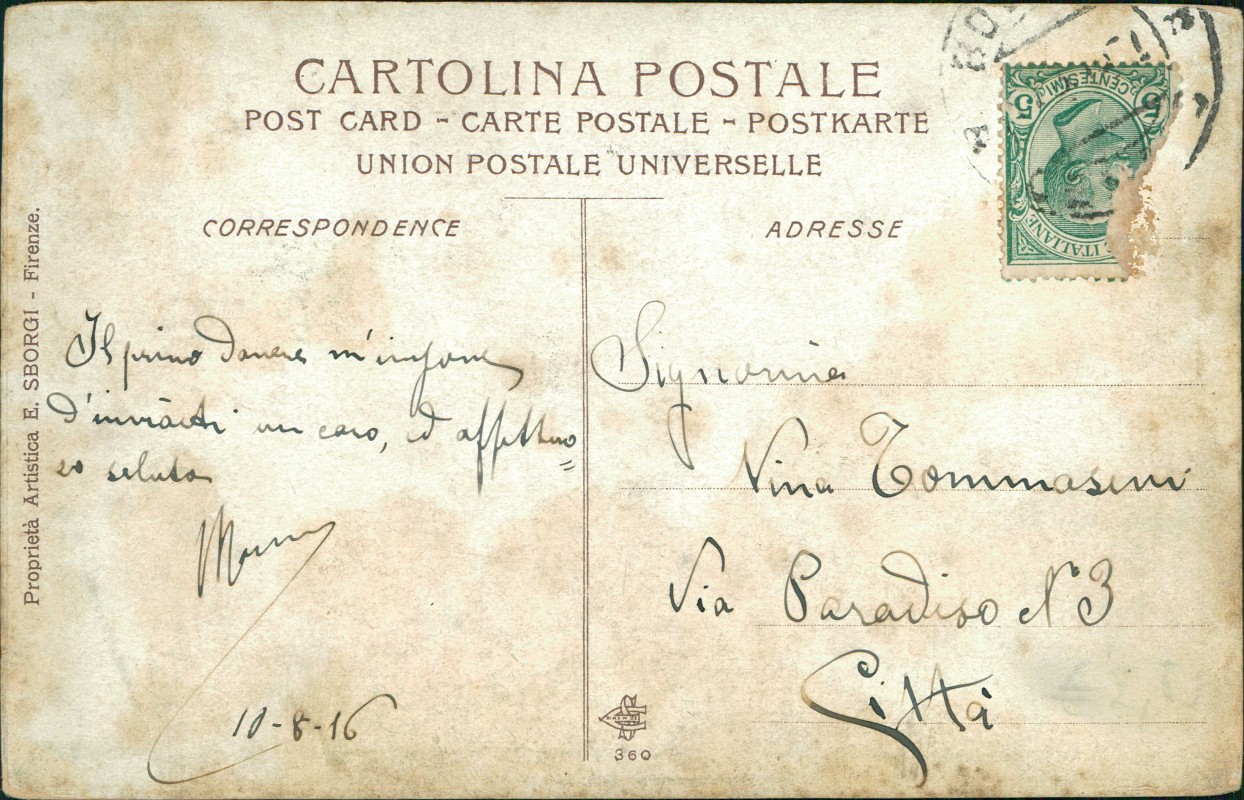 CARTOLINA POSTALE
POST CARD - CARTE POSTALE - POSTKARTE
UNION POSTALE UNIVERSELLE
CORRESPONDENCE
ADRESSE
5 CENTESIMI 5
E ITALIANE
BO
Proprietà Artistica E. SBORGI - Firenze.
Il primo dovere m'impone
d'inviarti un caro, ed affettuo=
so saluto
10-8-16
Signorina
Nina Tommasini
Via Paradiso N 3
Città
360